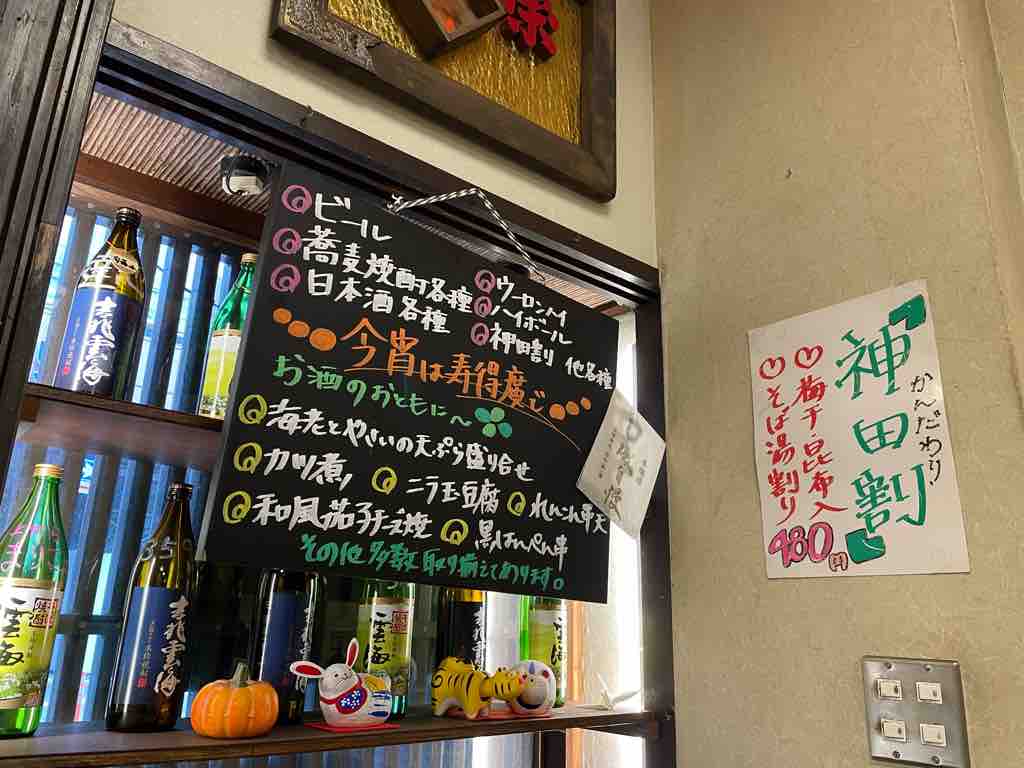 ビール
蕎麦焼酎各種
日本酒各種
ウーロンハイ
ハイボール
神田割 他各種
今宵は寿得廣で
お酒のおともに～
海老とやさいの天ぷら盛り合せ
カツ煮
ニラ玉豆腐
れんこん挟天
和風茄子チーズ焼
黒はんぺん串
その他多数取り揃えてあります。
かんだわり
「神田割」
梅干昆布入
そば湯割り
480円
雲海
吉兆雲海
35°